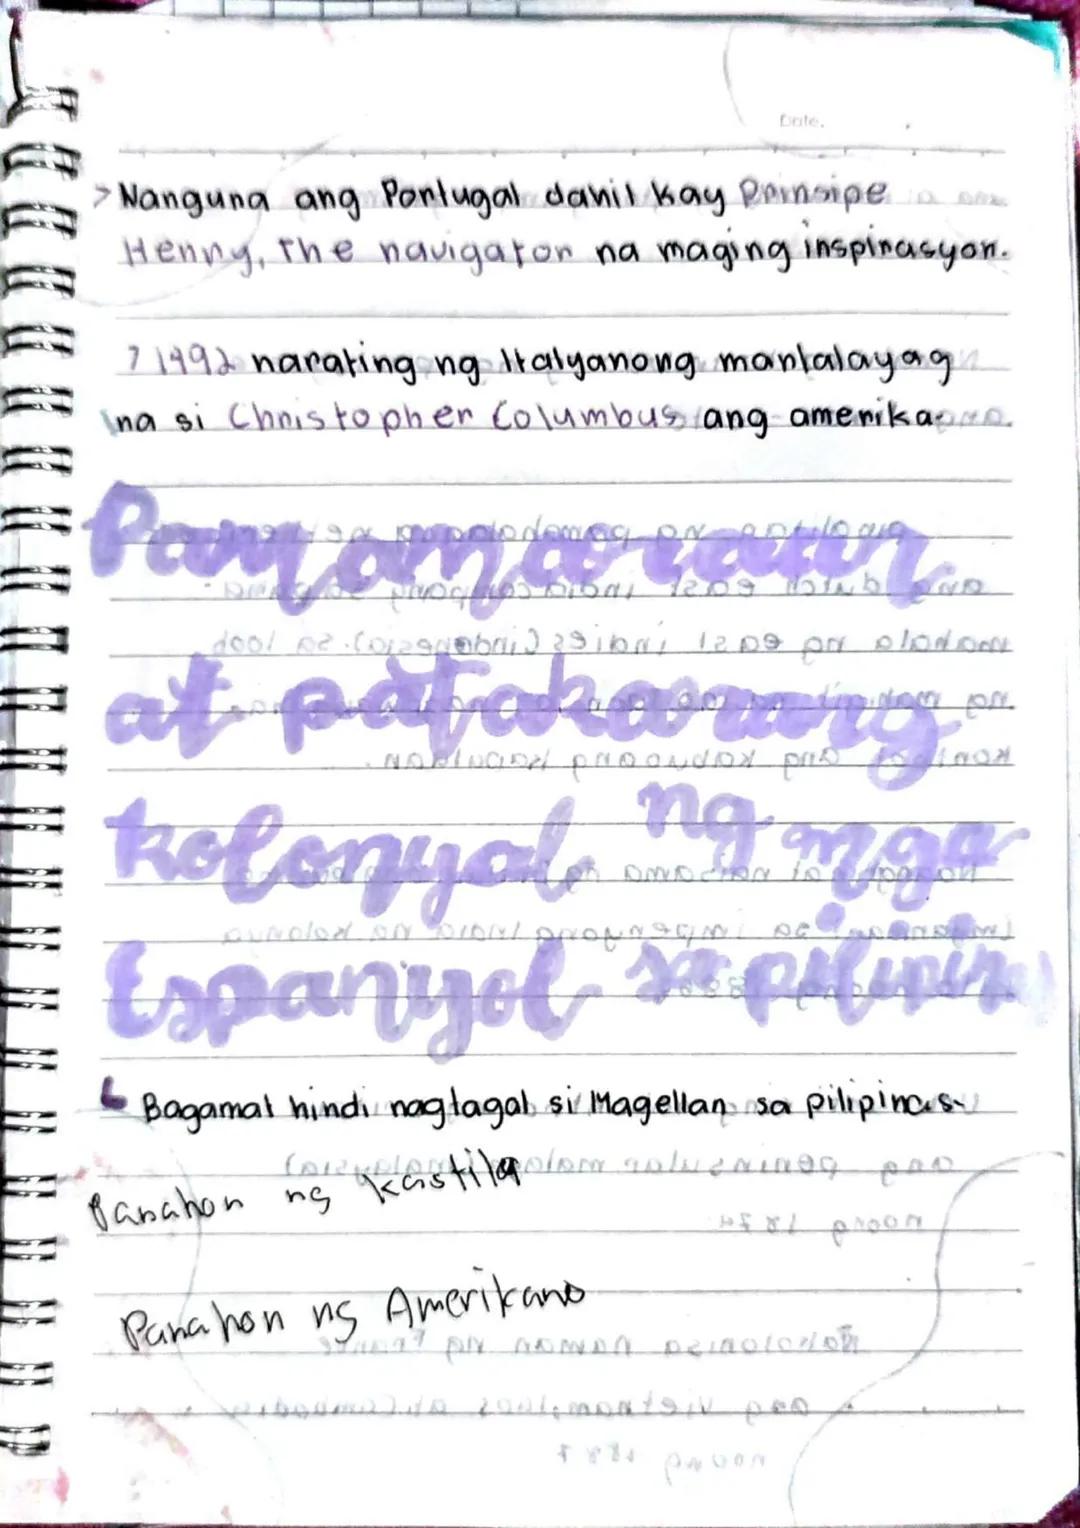 Date.
> Nanguna ang Portugal dahil kay Prinsipe
Henry, The navigator na maging inspirasyon.
> 1492 narating ng Italyanong mantalayag
na si Christopher Columbus ang amerika
Pamamaraan
at patakarang
kolonyal ng mga
Espanyol sa pilipinas
Bagamat hindi nagtagal si Magellan sa pilipinas.
Panahon ng kastila
Panahon ng Amerikano